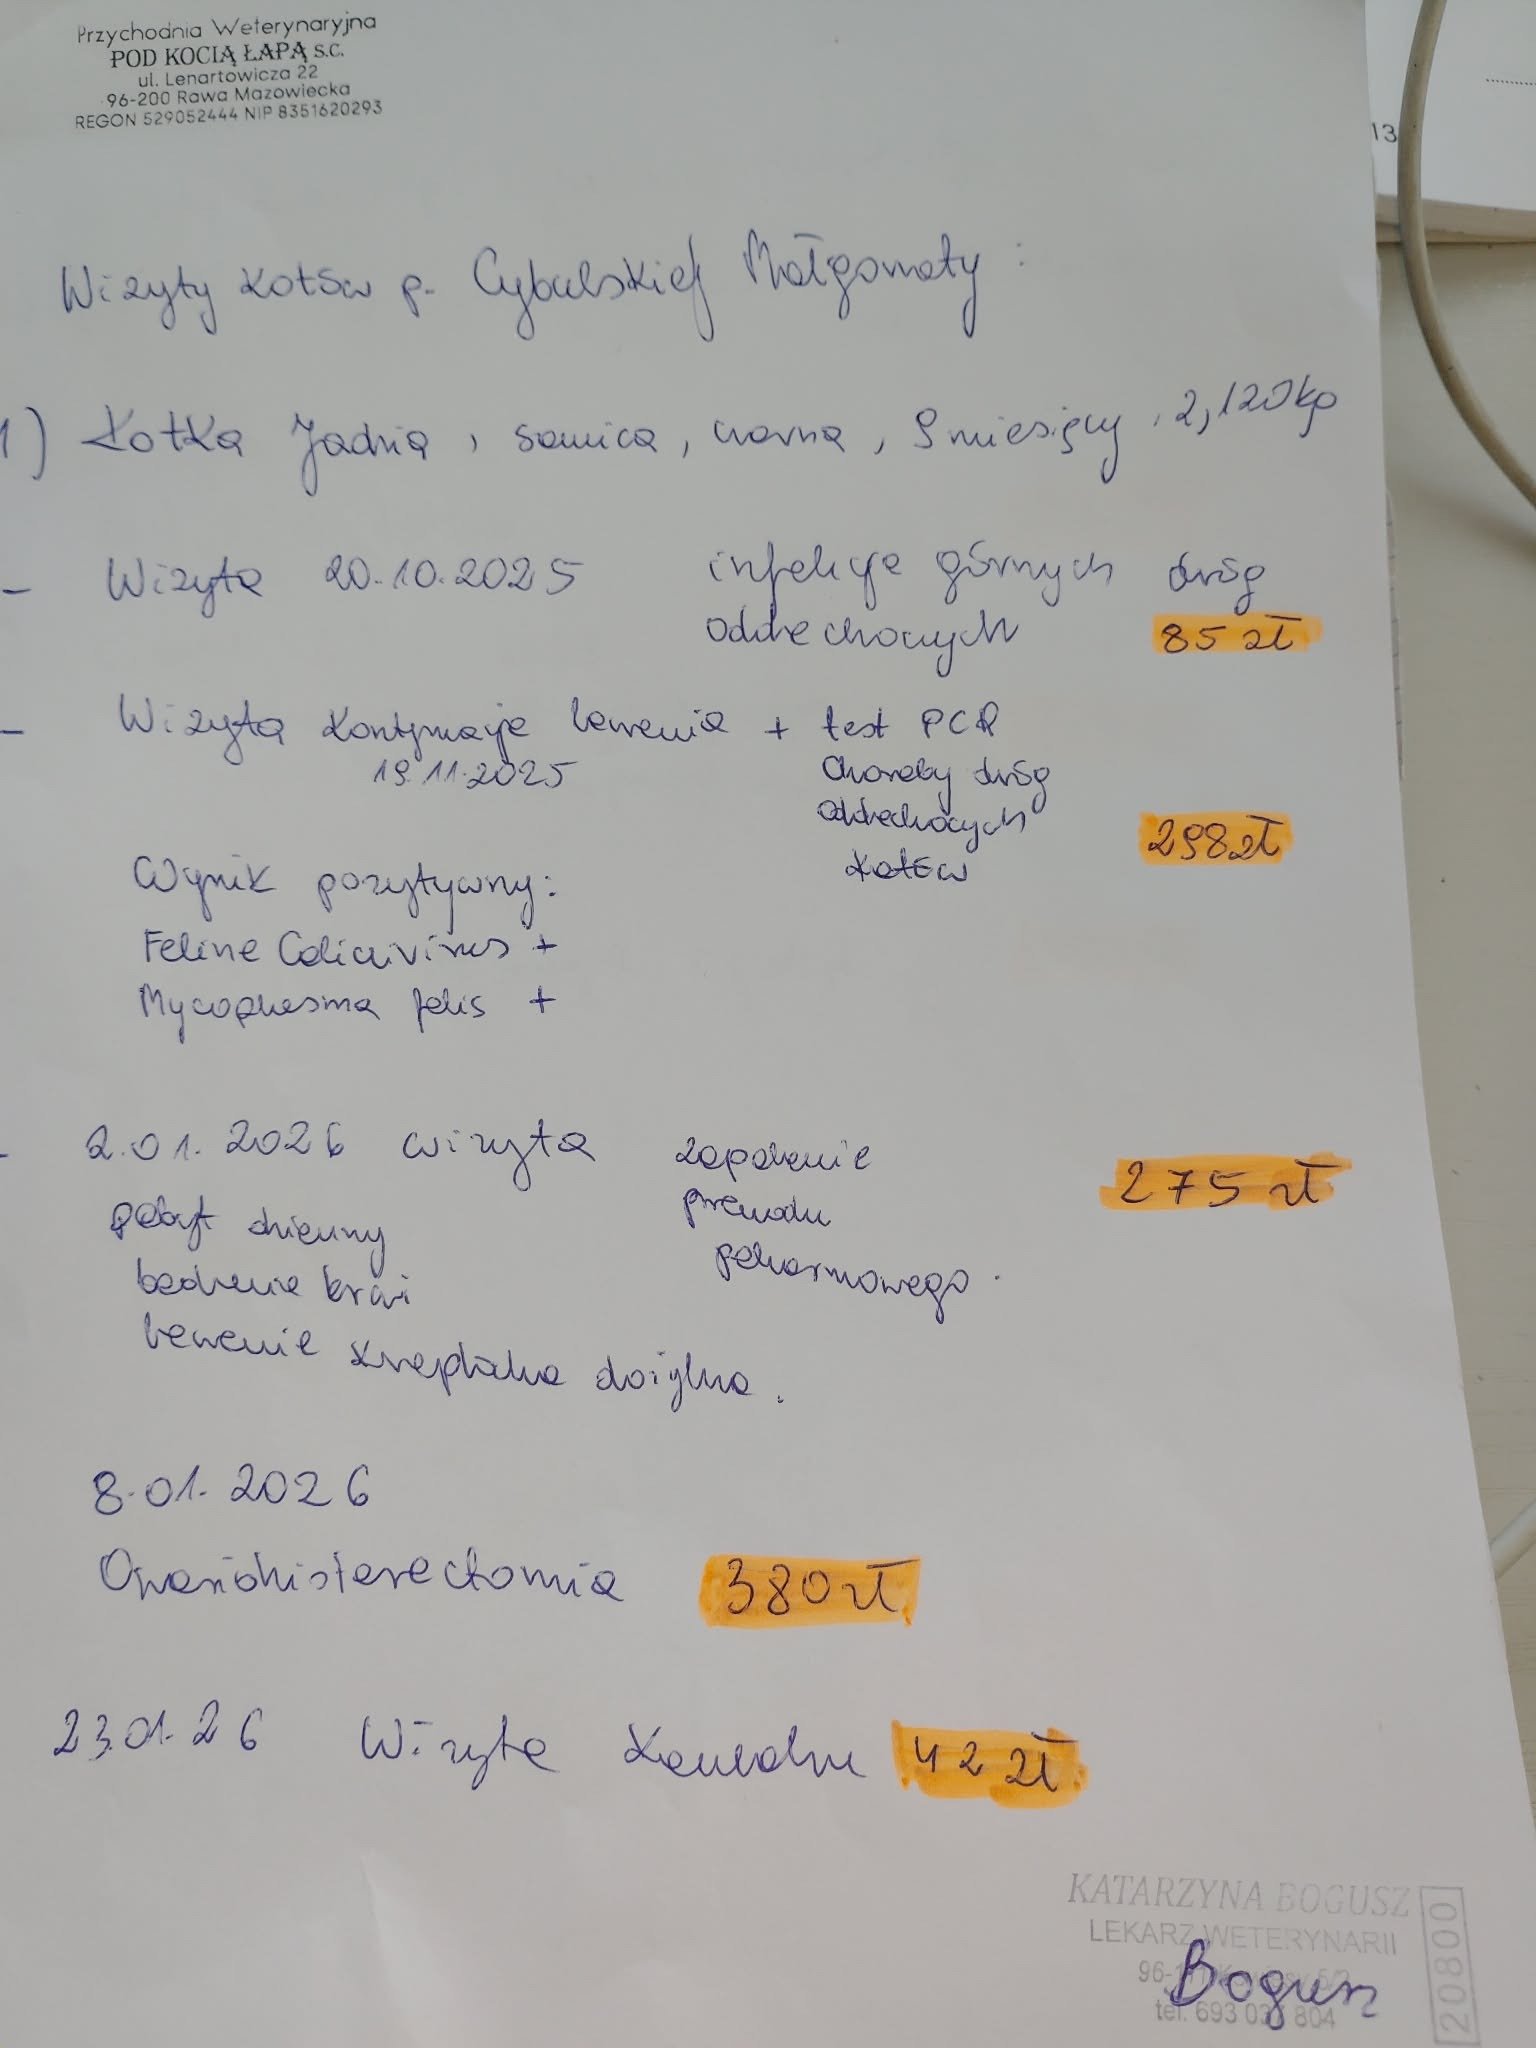 Przychodnia Weterynaryjna
POD KOCIĄ ŁAPĄ s.c.
ul. Lenartowicza 22
96-200 Rawa Mazowiecka
REGON 529052444 NIP 8351620293
13
Wizyty kotów p. Cybulskiej Małgorzaty :
1) Kotka Jadzia, samica, czarna, 9 miesięcy, 2,120kg
- Wizyta 20.10.2025 infekcje górnych dróg
oddechowych 85 zł
- Wizyta kontynuacje leczenia + test PCR
19.11.2025 Choroby dróg
oddechowych
kotów 298zł
Wynik pozytywny:
Feline Calicivirus +
Mycoplasma felis +
- 2.01.2026 wizyta zapalenie 275 zł
pobyt dzienny przewodu
badanie krwi pokarmowego.
leczenie kroplówka dożylna.
8.01.2026
Owariohisterectomia 380 zł
23.01.26 Wizyta kontrolna 42 zł
KATARZYNA BOGUSZ
LEKARZ WETERYNARII
Bogusz
tel. 693 03 804
20800